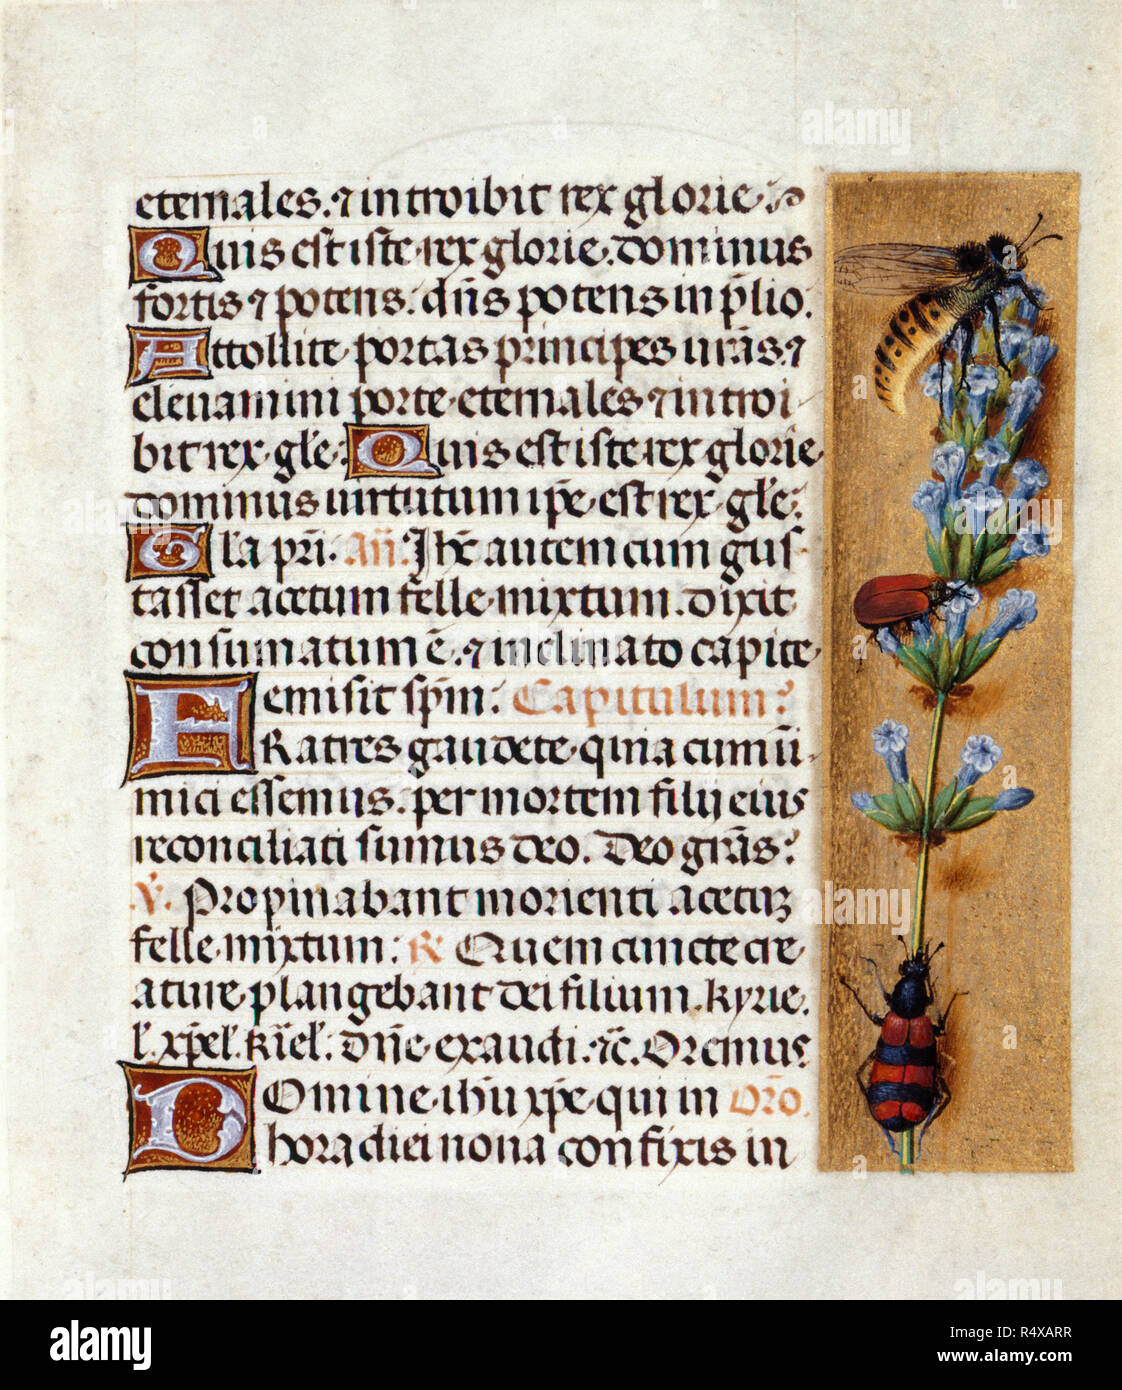 eternales. ⁊ introibit rex glorie.
Quis est iste rex glorie. dominus
fortis ⁊ potens. dn̄s potens in p̄lio.
Attollite portas principes ur̄as. ⁊
eleuamini porte eternales ⁊ introi
bit rex gl̄e. Quis est iste rex glorie
dominus uirtutum ip̄e est rex gl̄e.
Gl̄a pr̄i. An̄. Ih̄c autem cum gus
tasset acetum felle mixtum. dixit
consumatum ē. ⁊ inclinato capite
emisit sp̄m. Capitulum.
FRatres gaudete quia cum in̄i
mici essemus. per mortem filij eius
reconciliati sumus deo. Deo grās.
V̄. Propinabant morienti acetum
felle mixtum. R̄ Quem cuncte cre
ature plangebant dei filium. kyrie.
l̄. xp̄el̄. kr̄iel̄. Dn̄e exaudi. ⁊c̄. Oremus
DOmine ihū xp̄e qui in Or̄o.
hora diei nona confixis in
alamy
Image ID: R4XARR
www.alamy.com